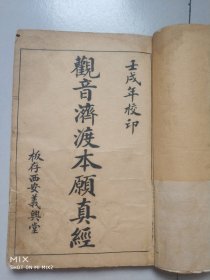 壬戌年校印
觀音濟渡本願真經
板存西安義興堂